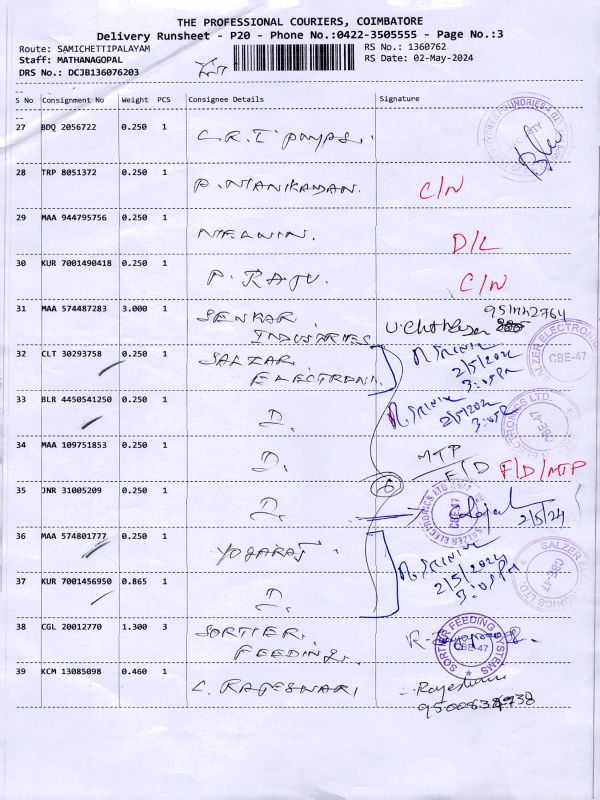 THE PROFESSIONAL COURIERS, COIMBATORE
Delivery Runsheet - P20 - Phone No.:0422-3505555 - Page No.:3
Route: SAMICHETTIPALAYAM
RS No.: 1360762
Staff: MATHANAGOPAL
RS Date: 02-May-2024
DRS No.: DCJB136076203
S No Consignment No Weight PCS Consignee Details Signature
27 BDQ 2056722 0.250 1 C.R.I
28 TRP 8051372 0.250 1 P. MANIKANDAN. C/N
29 MAA 944795756 0.250 1 D/L
30 KUR 7001490418 0.250 1 P. RAJU. C/N
31 MAA 574487283 3.000 1
INDUSTRIES
32 CLT 30293758 0.250 1 SALZAR
ELECTRONI.
2/5/2024
3:05PM
CBE-47
33 BLR 4450541250 0.250 1 D.
2/5/2024
3:05PM
CBE-47
34 MAA 109751853 0.250 1 D. MTP
F/D F/D/MTP
35 JNR 31005209 0.250 1 D.
SALZER ELECTRONICS LTD
CBE-47
2/5/24
36 MAA 574801777 0.250 1 YOGARAJ.
2/5/2024
3:05PM
SALZER ELECTRONICS LTD.
CBE-47
37 KUR 7001456950 0.865 1 D.
38 CGL 20012770 1.300 3 SORTIER
FEEDING.
SORTIER FEEDING SYSTEMS
CBE-47
39 KCM 13085098 0.460 1 L. RAJESWARI